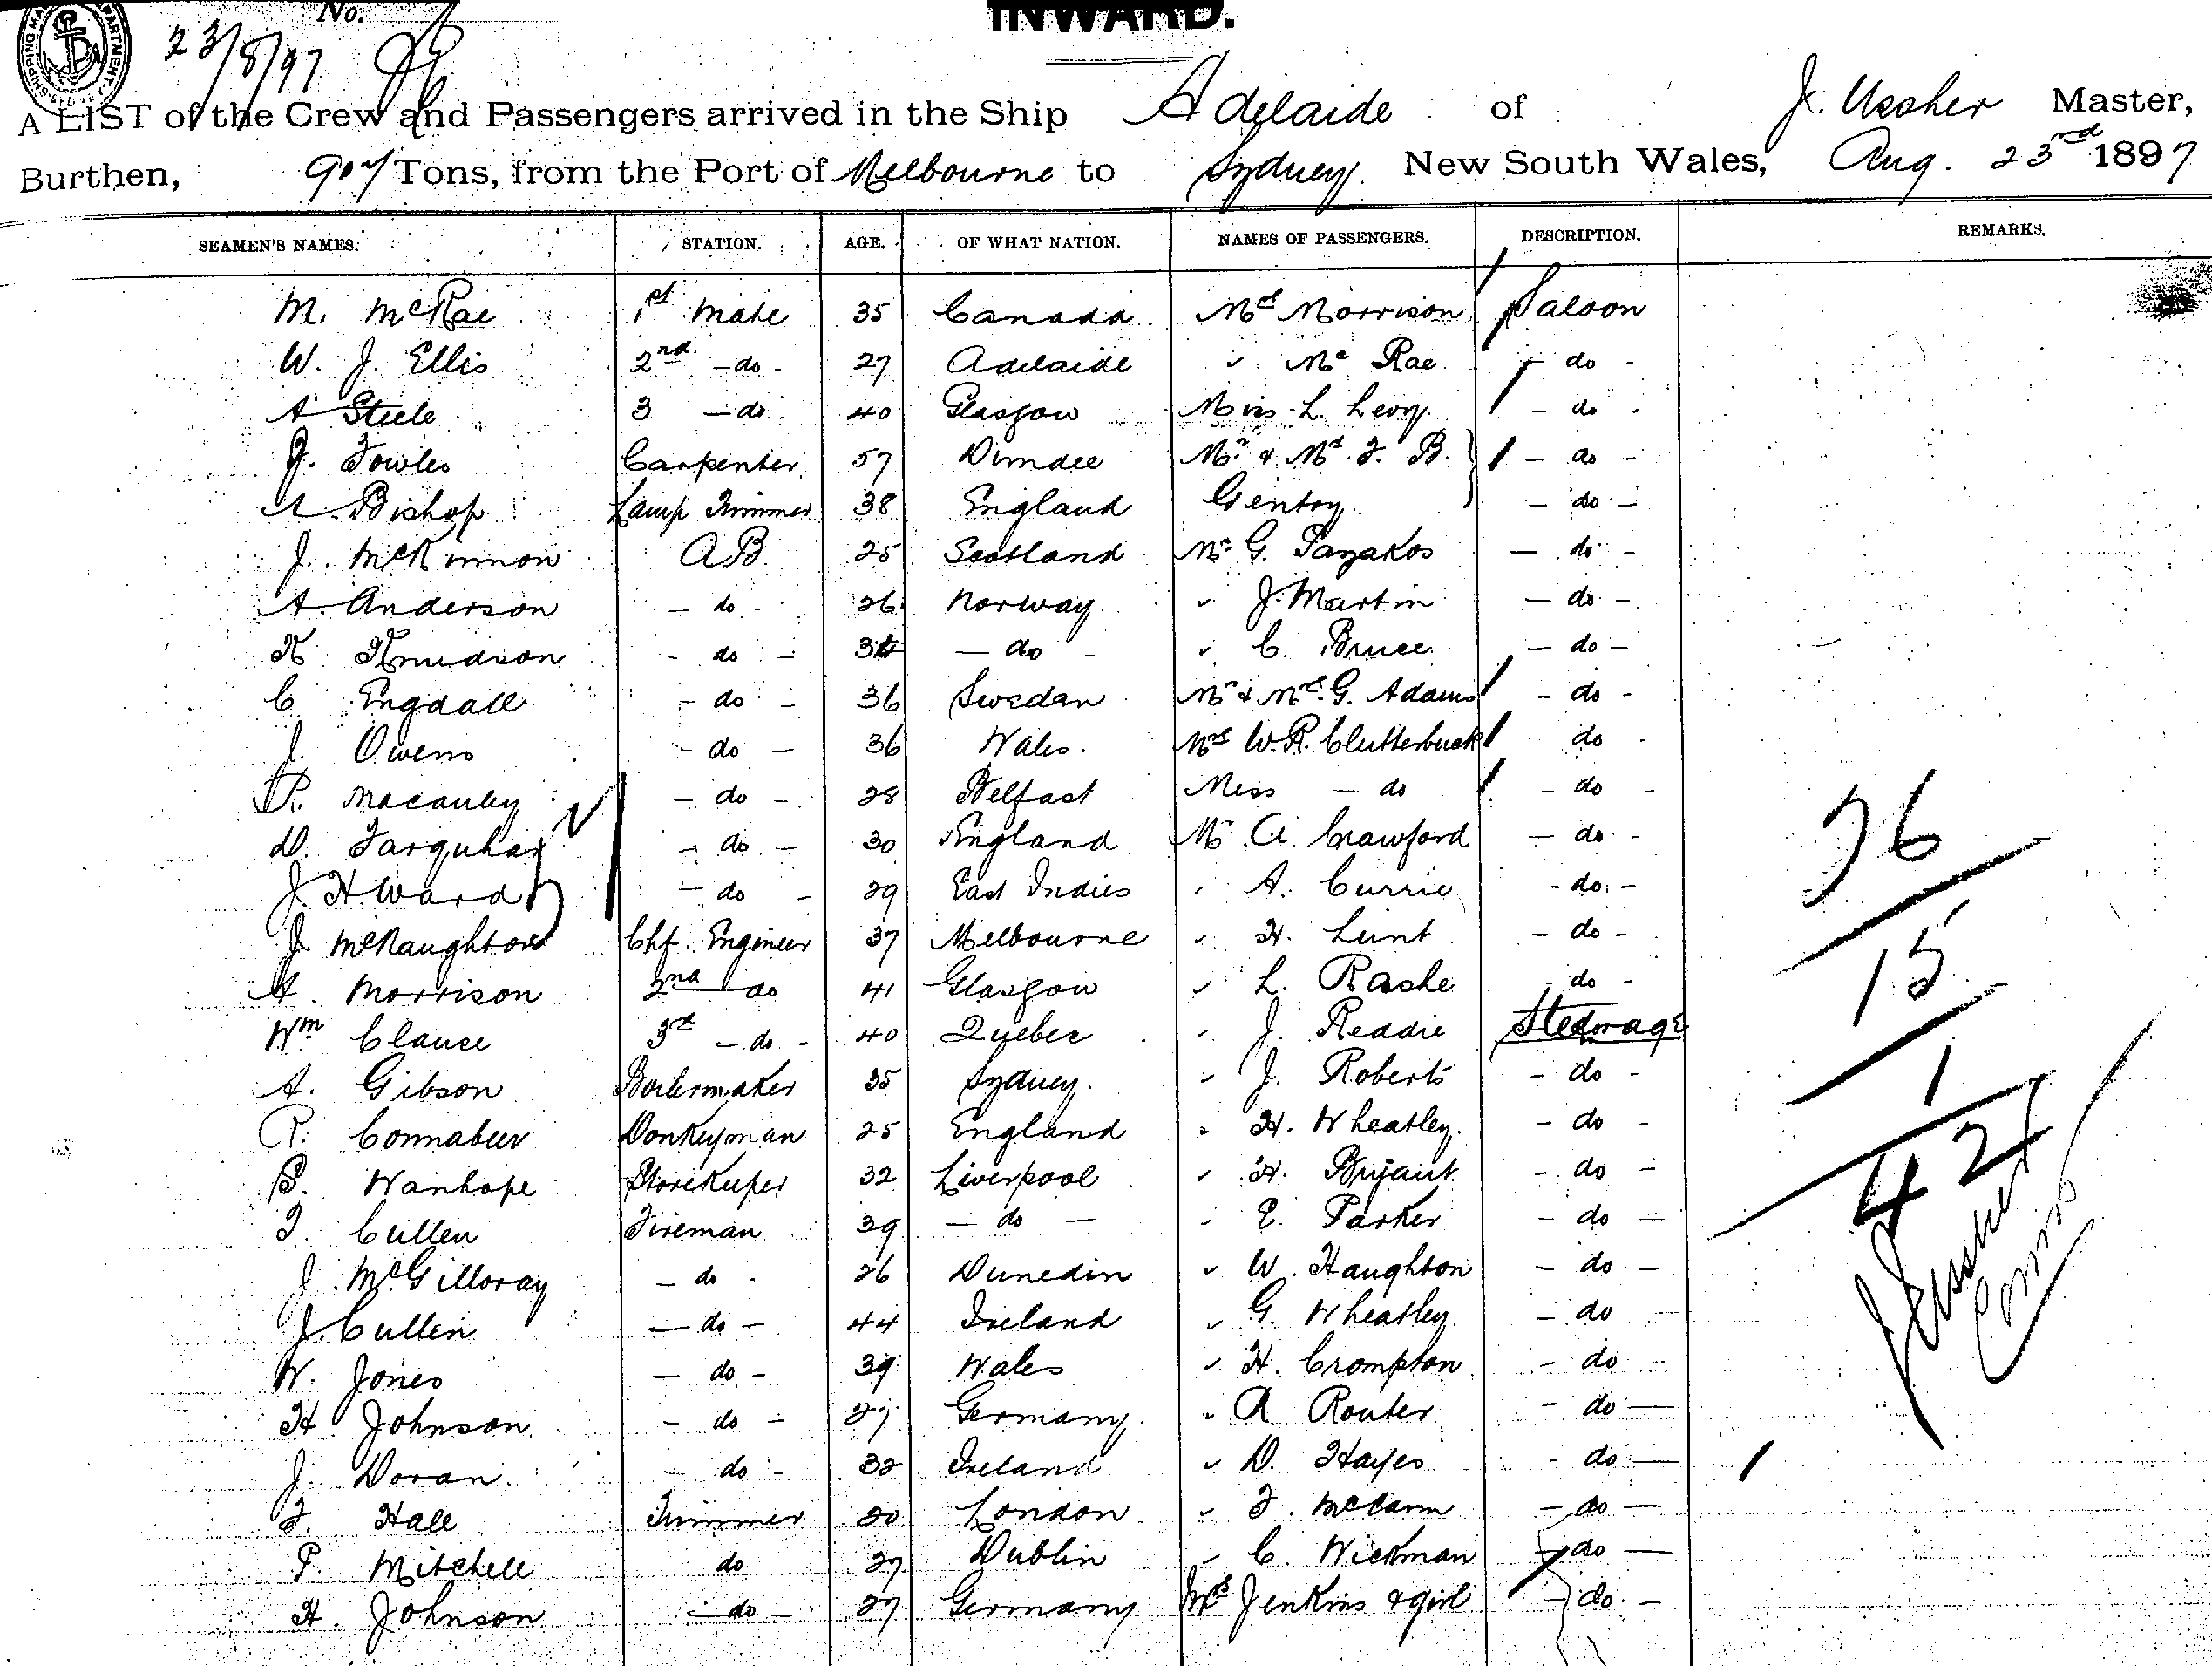 No.
INWARD.
23/8/97
A LIST of the Crew and Passengers arrived in the Ship Adelaide of J. Ussher Master,
Burthen, 907 Tons, from the Port of Melbourne to Sydney New South Wales, Aug. 23rd 1897
SEAMEN'S NAMES. STATION. AGE. OF WHAT NATION. NAMES OF PASSENGERS. DESCRIPTION. REMARKS.
M. McRae 1st Mate 35 Canada Mrs Morrison Saloon
W. J. Ellis 2nd - do - 27 Adelaide " Mc Rae - do -
A Steele 3 - do - 40 Glasgow Miss L. Levy - do -
J. Fowles Carpenter 57 Dundee Mr & Mrs F. B. - do -
A. Bishop Lamp Trimmer 38 England Gentry - do -
J. McKinnon AB 25 Scotland Mr G. Tayakos - do -
A. Anderson - do - 26 Norway " J. Martin - do -
K. Knudson - do - - do - " C. Bruce - do -
C Engdall - do - 36 Sweden Mr & Mrs G. Adams - do -
J. Owens - do - 36 Wales. Mrs W. R. Clutterbuck do -
R. Macauley - do - 28 Belfast Miss - do - do -
D. Farquhar - do - 30 England Mr A. Crawford - do -
J. H Ward - do - 29 East Indies " A. Currie - do -
J. McNaughton Chf. Engineer 37 Melbourne " H. Lunt - do -
A. Morrison 2nd do 41 Glasgow " L. Rashe - do -
Wm Clause 3rd - do - 40 Quebec " J. Reddie Steerage
A. Gibson Boilermaker 35 Sydney. " J. Roberts - do -
R. Connabeer Donkeyman 25 England " H. Wheatley. - do -
S. Wanhope Storekeeper 32 Liverpool " H. Bryant - do -
T. Cullen Fireman 39 - do - " E. Parker - do -
J. McGilloray - do - 26 Dunedin " W. Haughton - do -
J. Cullen - do - 44 Ireland " G. Wheatley - do
W. Jones - do - 39 Wales " H. Crompton - do -
H Johnson - do - 27 Germany. " A Router - do -
J. Doran - do - 32 Ireland " D. Hayes - do -
F. Hall Trimmer 20 London " F. McCann - do -
P. Mitchell do 27 Dublin " C. Wickman - do -
H. Johnson - do - 27 Germany Mrs Jenkins & girl - do -
26
15
1
42
J Ussher